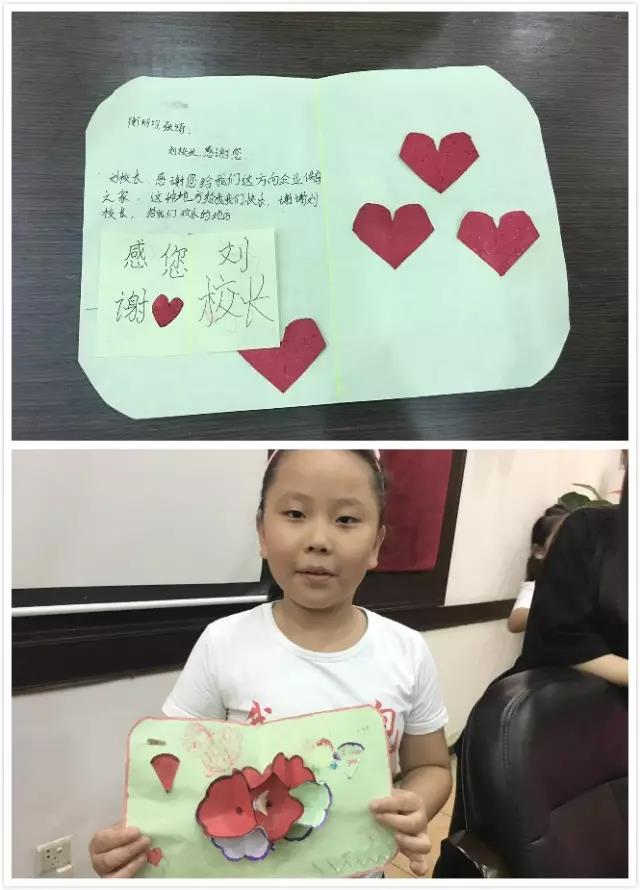 刘校长感谢您
刘校长、感谢您给我们这方向企业
大家、这种地方给我们快乐，谢谢刘
校长，给我们欢乐的地方
感您 刘
谢 校长